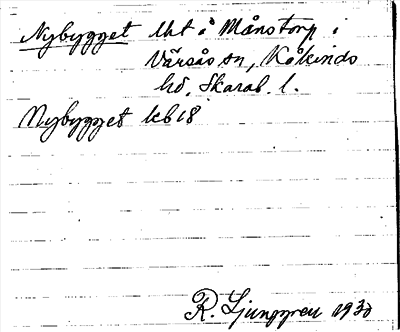 Nybygget lht i Månstorp i
Värsås sn, Kåkinds
hd, Skarab. l.
Nybygget kb 18
R. Ljunggren 1930